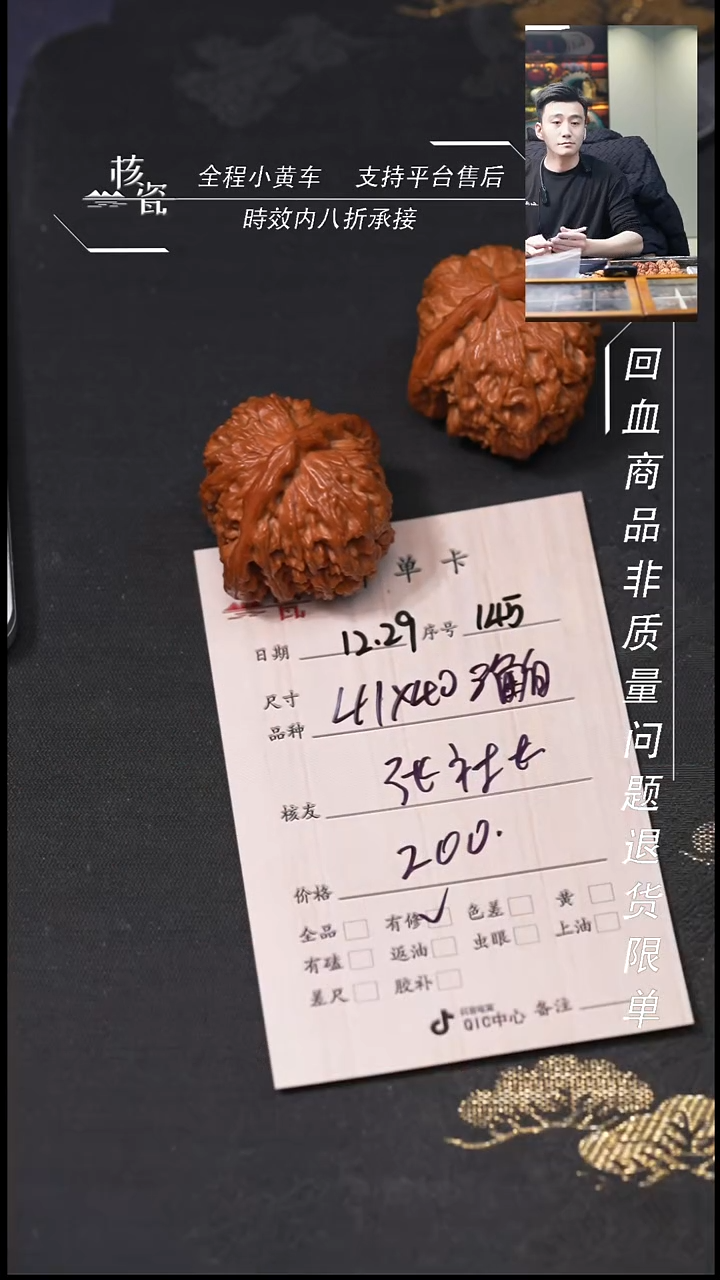 核瓷
全程小黄车 支持平台售后
時效内八折承接
回血商品非质量问题退货限单
单卡
日期 12.29 序号 145
尺寸
品种 41×40
核友 张社长
价格 200.
全品 有修 ✓ 色差 黄
有磕 返油 虫眼 上油
差尺 胶补
QIC中心 备注